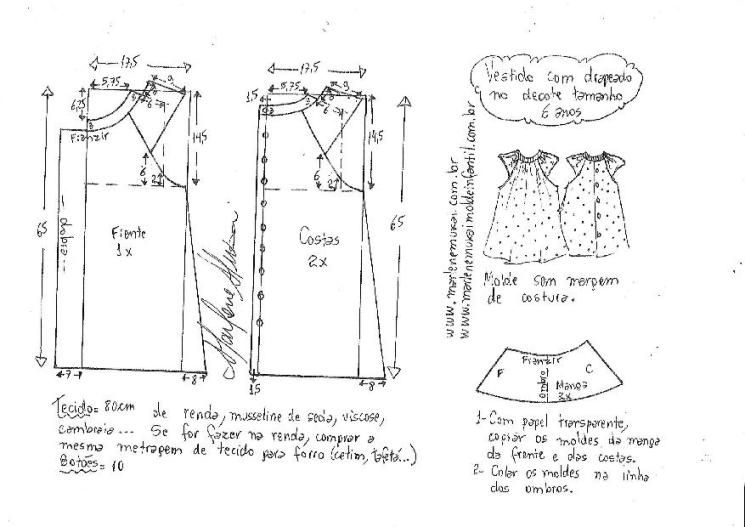 17,5
5,75
9
6,75
3
6
14,5
Franzir
6
2
65
dobra
Frente
1x
7
8
17,5
1,5
5,75
9
3
6
14,5
6
2
65
Costas
2x
1,5
8
Marlene Mukai
www.marlenemukai.com.br
www.marlenemukaimoldeinfantil.com.br
Vestido com drapeado
no decote tamanho
6 anos
Molde sem margem
de costura.
Franzir
F
C
ombro
Manga
2x
1- Com papel transparente,
copiar os moldes da manga
da frente e das costas.
2- Colar os moldes na linha
dos ombros.
Tecido= 80cm de renda, musseline de seda, viscose,
cambraia... Se for fazer na renda, comprar a
mesma metragem de tecido para forro (cetim, tafetá...)
Botões= 10